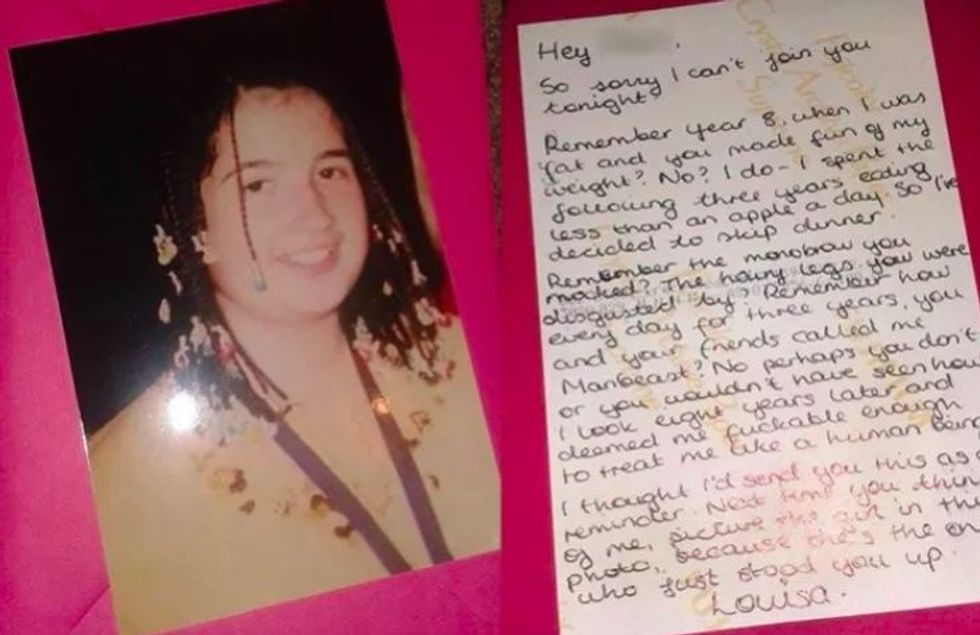 Hey
So sorry I can't join you
tonight.
Remember year 8, when I was
fat and you made fun of my
weight? No? I do - I spent the
following three years eating
less than an apple a day. So I've
decided to skip dinner.
Remember the monobrow you
mocked? The hairy legs you were
disgusted by? Remember how
every day for three years, you
and your friends called me
Manbeast? No perhaps you don't -
or you wouldn't have seen how
I look eight years later and
deemed me fuckable enough
to treat me like a human being
I thought I'd send you this as a
reminder. Next time you think
of me, picture the girl in this
photo, because she's the one
who just stood you up.
Louisa.